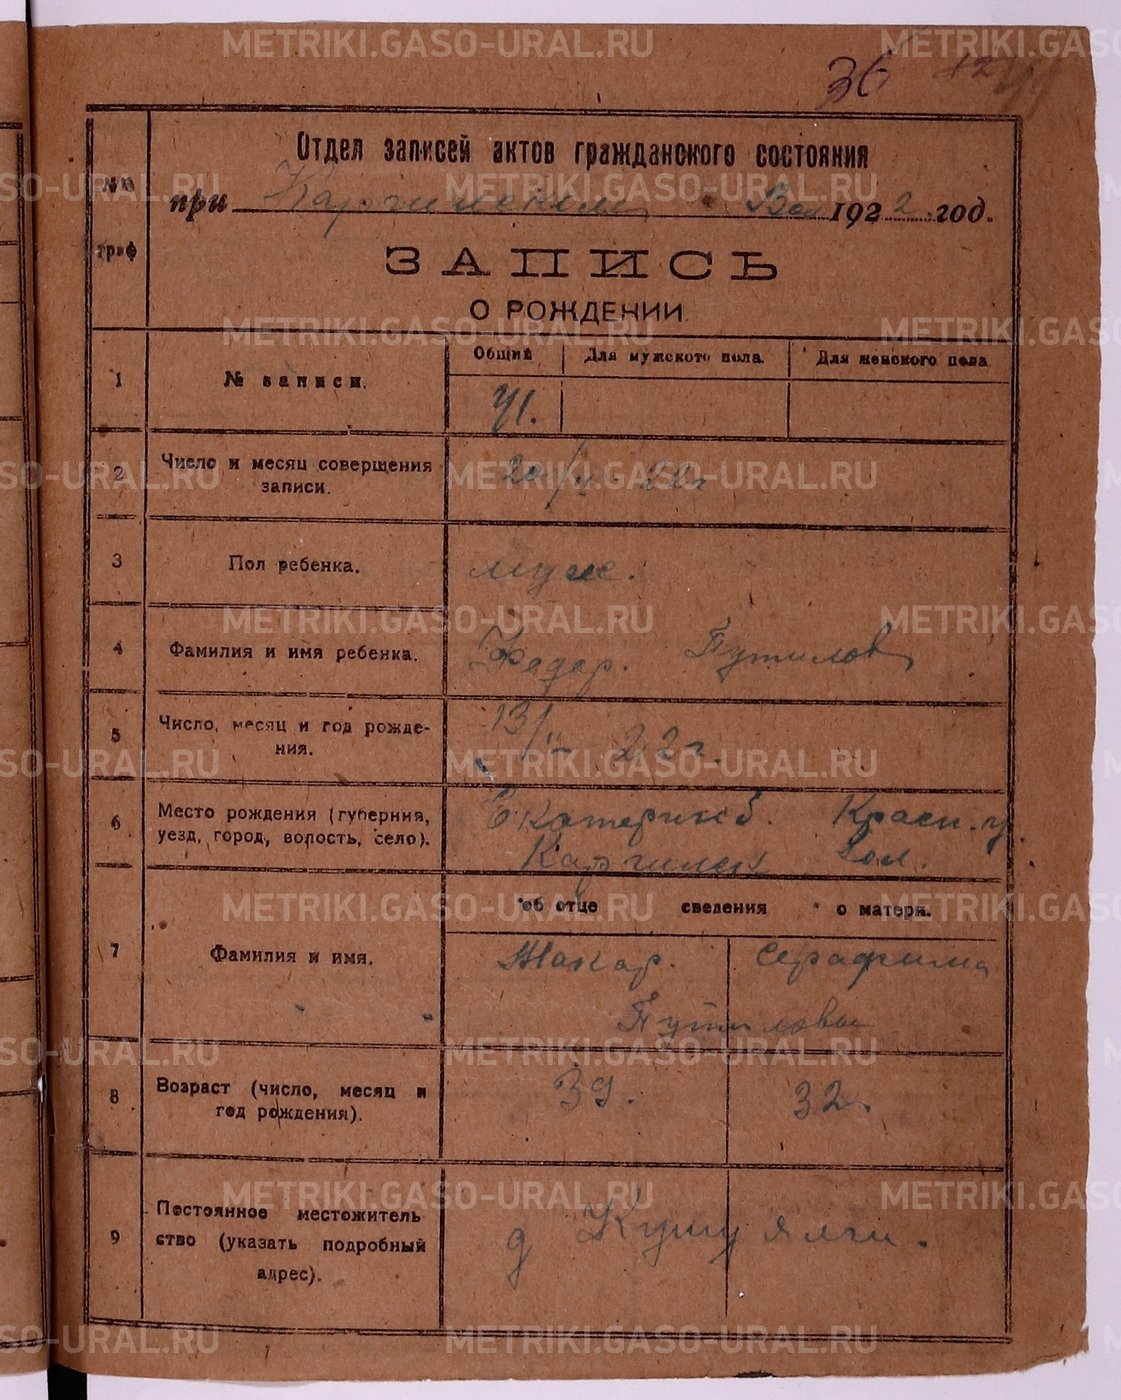 36
Отдел записей актов гражданского состояния
при Каргинском Вол 1922 год.
№№ граф
ЗАПИСЬ
О РОЖДЕНИИ
1 № записи. Общий Для мужского пола. Для женского пола
41.
2 Число и месяц совершения записи. 20/ 22г
3 Пол ребенка. муж.
4 Фамилия и имя ребенка. Федор. Путилов
5 Число, месяц и год рождения. 13/ 22г.
6 Место рождения (губерния, уезд, город, волость, село). Екатеринб. Красн. у.
Каргинск вол.
об отце сведения о матери.
7 Фамилия и имя. Макар. Серафима
Путиловы
8 Возраст (число, месяц и год рождения). 39. 32.
9 Постоянное местожительство (указать подробный адрес). д
METRIKI.GASO-URAL.RU